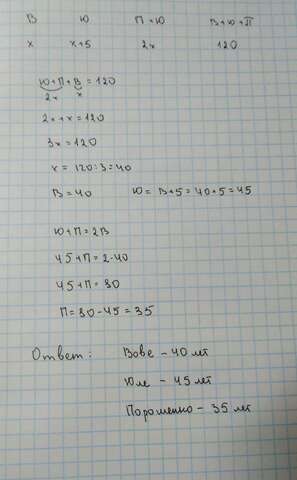 В Ю П+Ю В+Ю+П
x x+5 2x 120
Ю+П+В=120
2x x
2x+x=120
3x=120
x=120:3=40
В=40 Ю=В+5=40+5=45
Ю+П=2В
45+П=2·40
45+П=80
П=80-45=35
Ответ: Вове - 40 лет
Юле - 45 лет
Порошенко - 35 лет